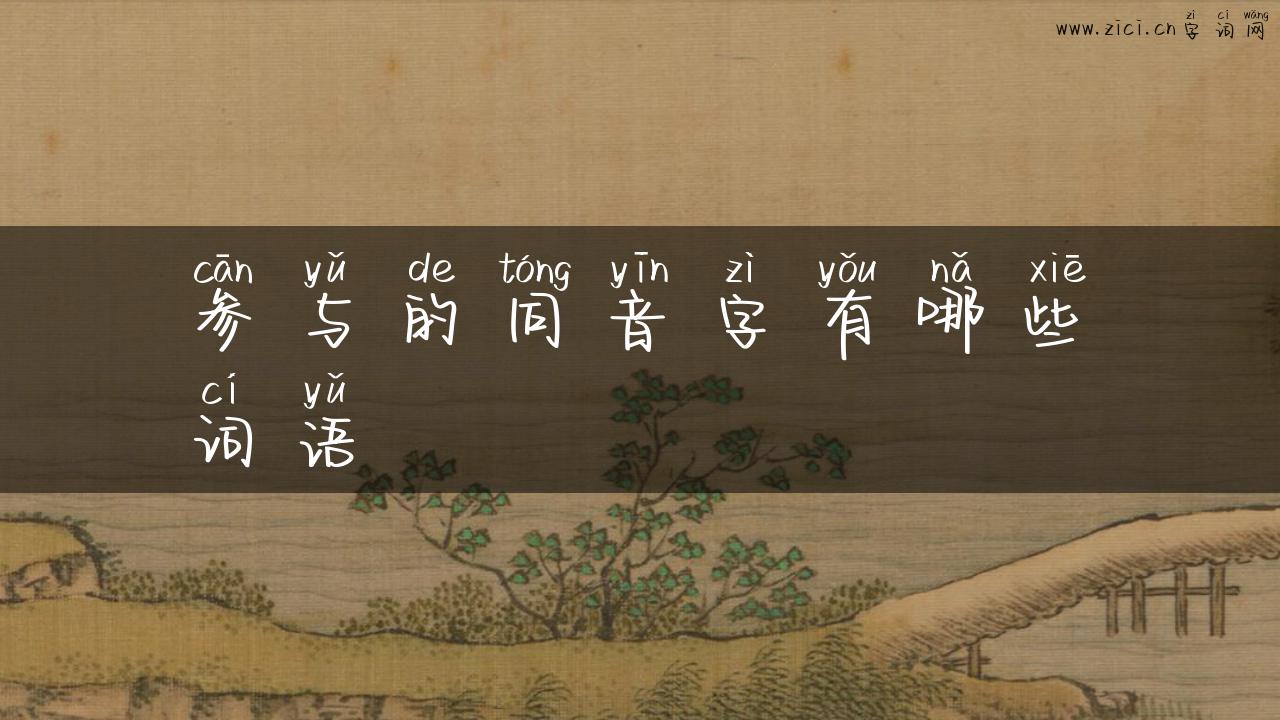 zì cí wǎng
www.zici.cn 字词网
cān yǔ de tóng yīn zì yǒu nǎ xiē
参与的同音字有哪些
cí yǔ
词语